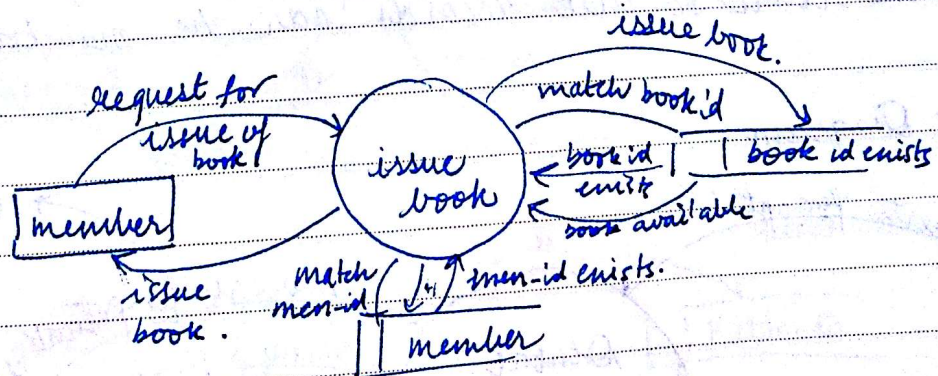 issue book.
request for
issue of
book
match book id
issue
book
book id
exists
book id exists
book available
member
issue
book.
match
mem-id
mem-id exists.
member